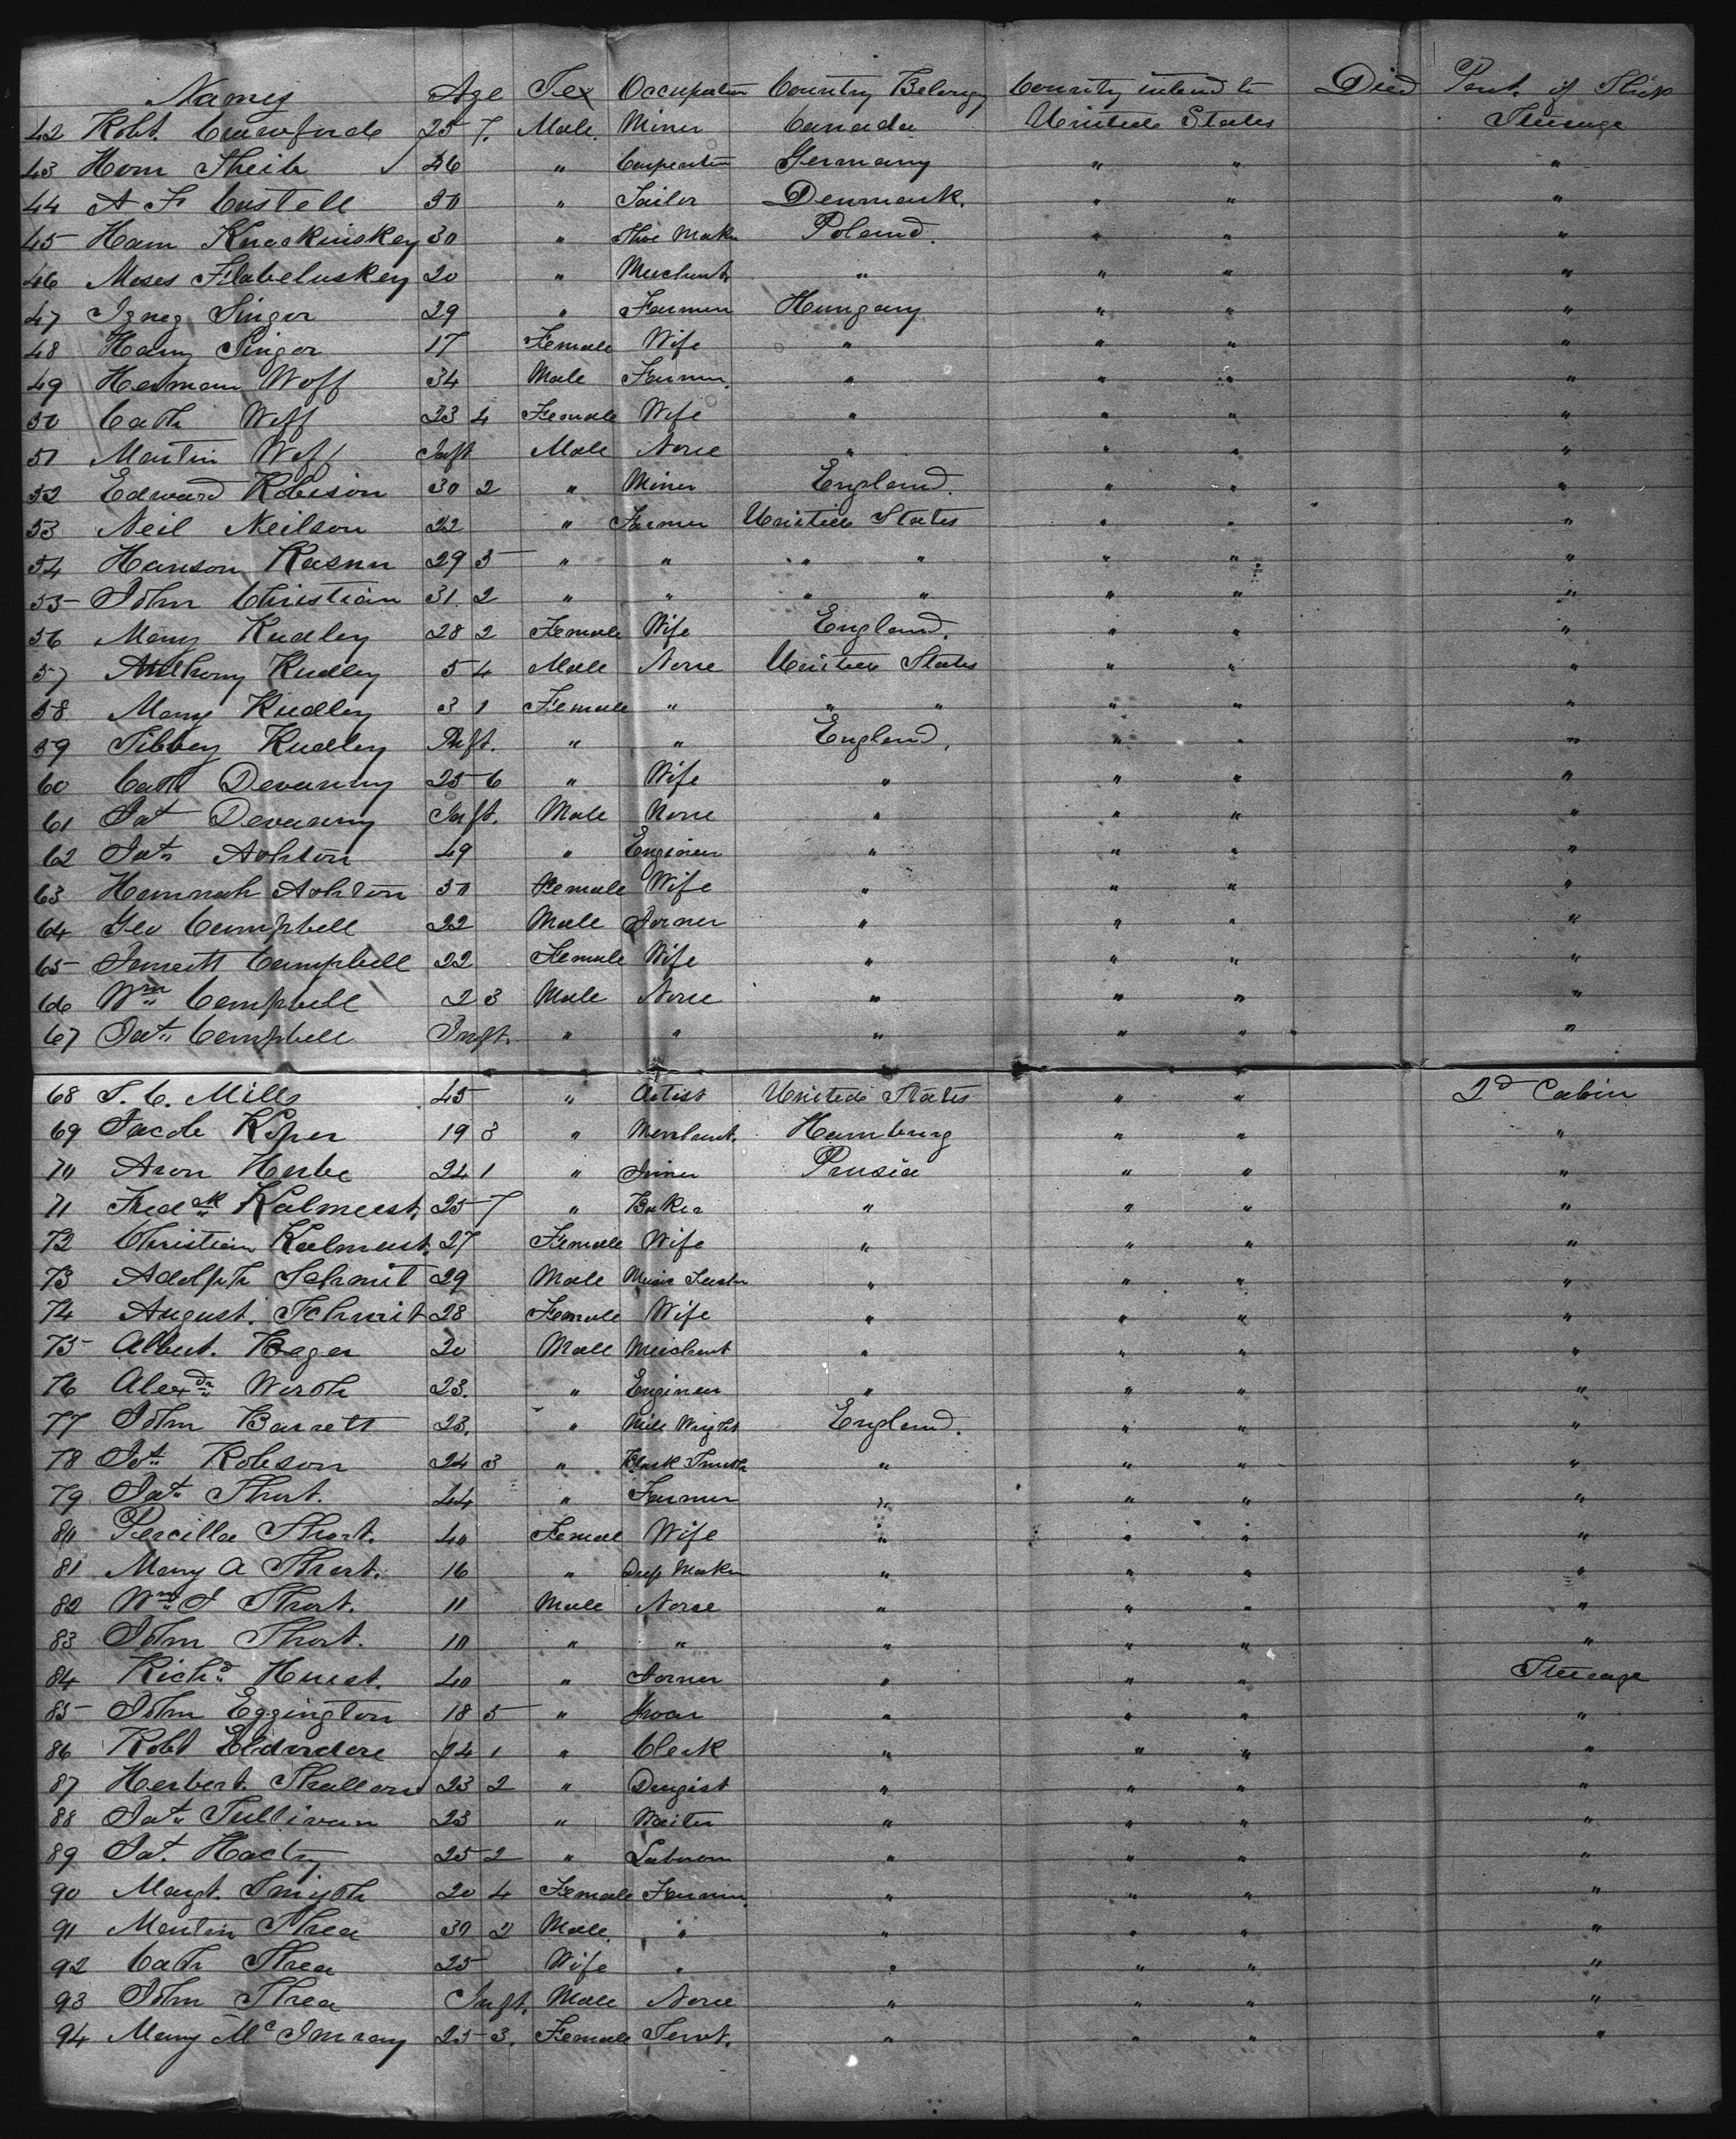 Names Age Sex Occupation Country Belongg Country intend to Died Part of Ship
42 Robt. Crawford 25 7. Male. Miner Canada United States Steerage
43 Hom Sheib 46 " Carpenter Germany " " "
44 A F Castell 30 " Sailor Denmark. " " "
45 Ham 30 " Shoe Maker Poland. " " "
46 Moses Flabeluskey 20 " Merchant " " " "
47 Ignez Singor 29 " Farmer Hungary " " "
48 Hany Singor 17 Female Wife " " " "
49 Herman Woff 34 Male Farmer. " " " "
50 Cath Woff 23 4 Female Wife " " " "
51 Martin Woff Inft Male None " " " "
52 Edward Robison 30 2 " Miner England. " " "
53 Neil Neilson 22 " Farmer United States " " "
54 Hanson Rasmn 29 5 " " " " " " "
55 John Christian 31. 2 " " " " " " "
56 Mary Rudley 28 2 Female Wife England. " " "
57 Anthony Rudley 5 4 Male None United States " " "
58 Mary Rudley 3 1 Female " " " " " "
59 Tibbey Rudley Inft. " " England, " " "
60 Cath Devanny 25 6 " Wife " " " "
61 Pat Devanny Inft. Male None " " " "
62 Jas Ashton 49 " Engineer " " " "
63 Hannah Ashton 50 Female Wife " " " "
64 Geo Campbell 22 Male Jorner " " " "
65 Campbell 22 Female Wife " " " "
66 Wm Campbell 2 3 Male None " " " "
67 Jas Campbell Inft. " " " " " "
68 S. C. Mills 45 " Artist United States " " 2d Cabin
69 Jacob Koper 19 3 " Merchant. Hamburg " " "
70 Aron Herbe 24 1 " Joiner Prusia " " "
71 Fredck Kalmeest. 25 7 " Baker " " " "
72 Christian Kalmeest. 27 Female Wife " " " "
73 Adolph Schmit 29 Male Music Teacher " " " "
74 August. Schmit 28 Female Wife " " " "
75 Albert. Hager 20 Male Merchant " " " "
76 Alexdr Wirth 23. " Engineer " " " "
77 John Barrett 23. " Mill Wright England. " " "
78 Jos Robson 24 3 " Black Smith " " " "
79 Jas Short. 44 " Farmer " " " "
80 Percilla Short. 40 Female Wife " " " "
81 Mary A Short. 16 " Dress Maker " " " "
82 Wm J Short. 11 Male None " " " "
83 John Short. 10 " " " " " "
84 Richd Hurst. 40 " Jorner " " " Steerage
85 John Eggington 18 5 " " " " "
86 Robt 24 1 " Clerk " " " "
87 Herbert. 23 2 " Drugist " " " "
88 Jas Sullivan 23 " Waiter " " " "
89 Pat. 25 2 " Laborer " " " "
90 Margt. Smyth 20 4 Female Farmin " " " "
91 Martin Shea 30 2 Male. " " " " "
92 Cath Shea 25 Wife " " " " "
93 John Shea Inft. Male None " " " "
94 Mary Mc 25 3. Female Servt. " " " "